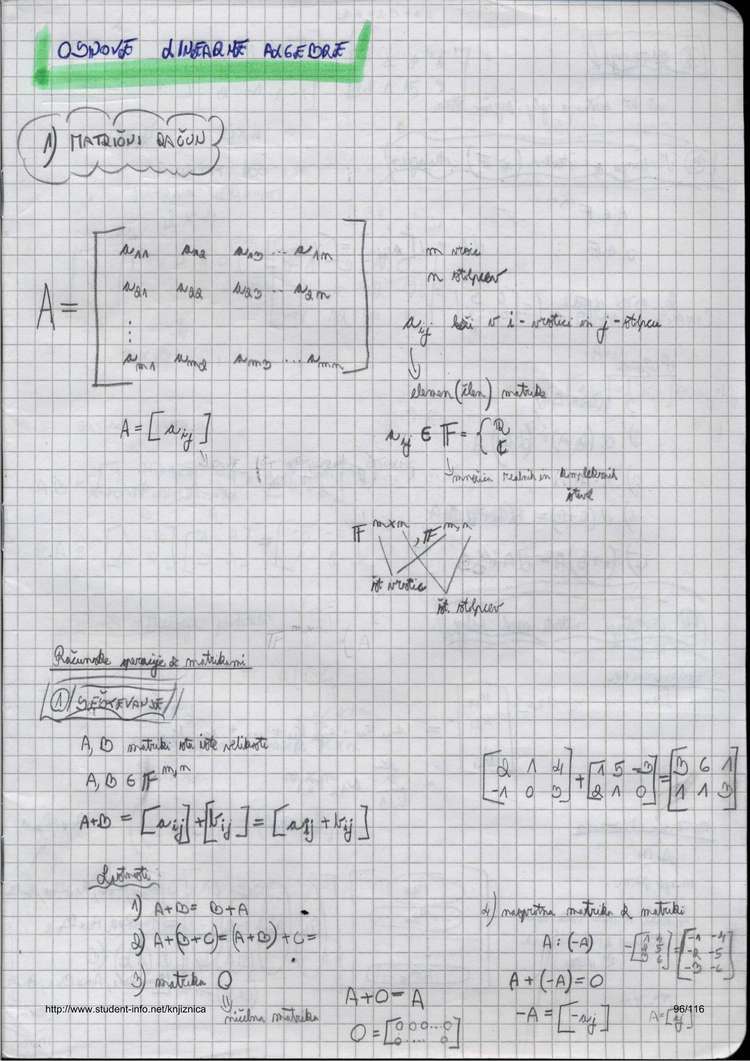 OSNOVE LINEARNE ALGEBRE
1) MATRIČNI RAČUN
A = [ a11 a12 a13 ... a1n
a21 a22 a23 ... a2n
⋮
am1 am2 am3 ... amn ]
m vrstic
n stolpcev
aij leži v i-vrstici in j-stolpcu
elemen (člen) matrike
A = [aij]
aij ∈ F = { R
C
množica realnih in kompleksnih
števil
F m×n , F m,n
št. vrstic
št. stolpcev
Računske operacije z matrikami
1) SEŠTEVANJE
A, B matriki iste velikosti
A, B ∈ F m,n
A+B = [aij] + [bij] = [aij + bij]
[ 2 1 4
-1 0 3 ] + [ 1 5 -3
2 1 0 ] = [ 3 6 1
1 1 3 ]
Lastnosti:
1) A+B = B+A
2) A+(B+C) = (A+B)+C =
3) matrika O
ničelna matrika
A+O = A
O = [ 0 0 0 ... 0
0 .... 0 ]
4) nasprotna matrika k matriki
A : (-A)
A + (-A) = O
-A = [-aij]
-[ 1 4
2 5
3 6 ] = [ -1 -4
-2 -5
-3 -6 ]
http://www.student-info.net/knjiznica
96/116